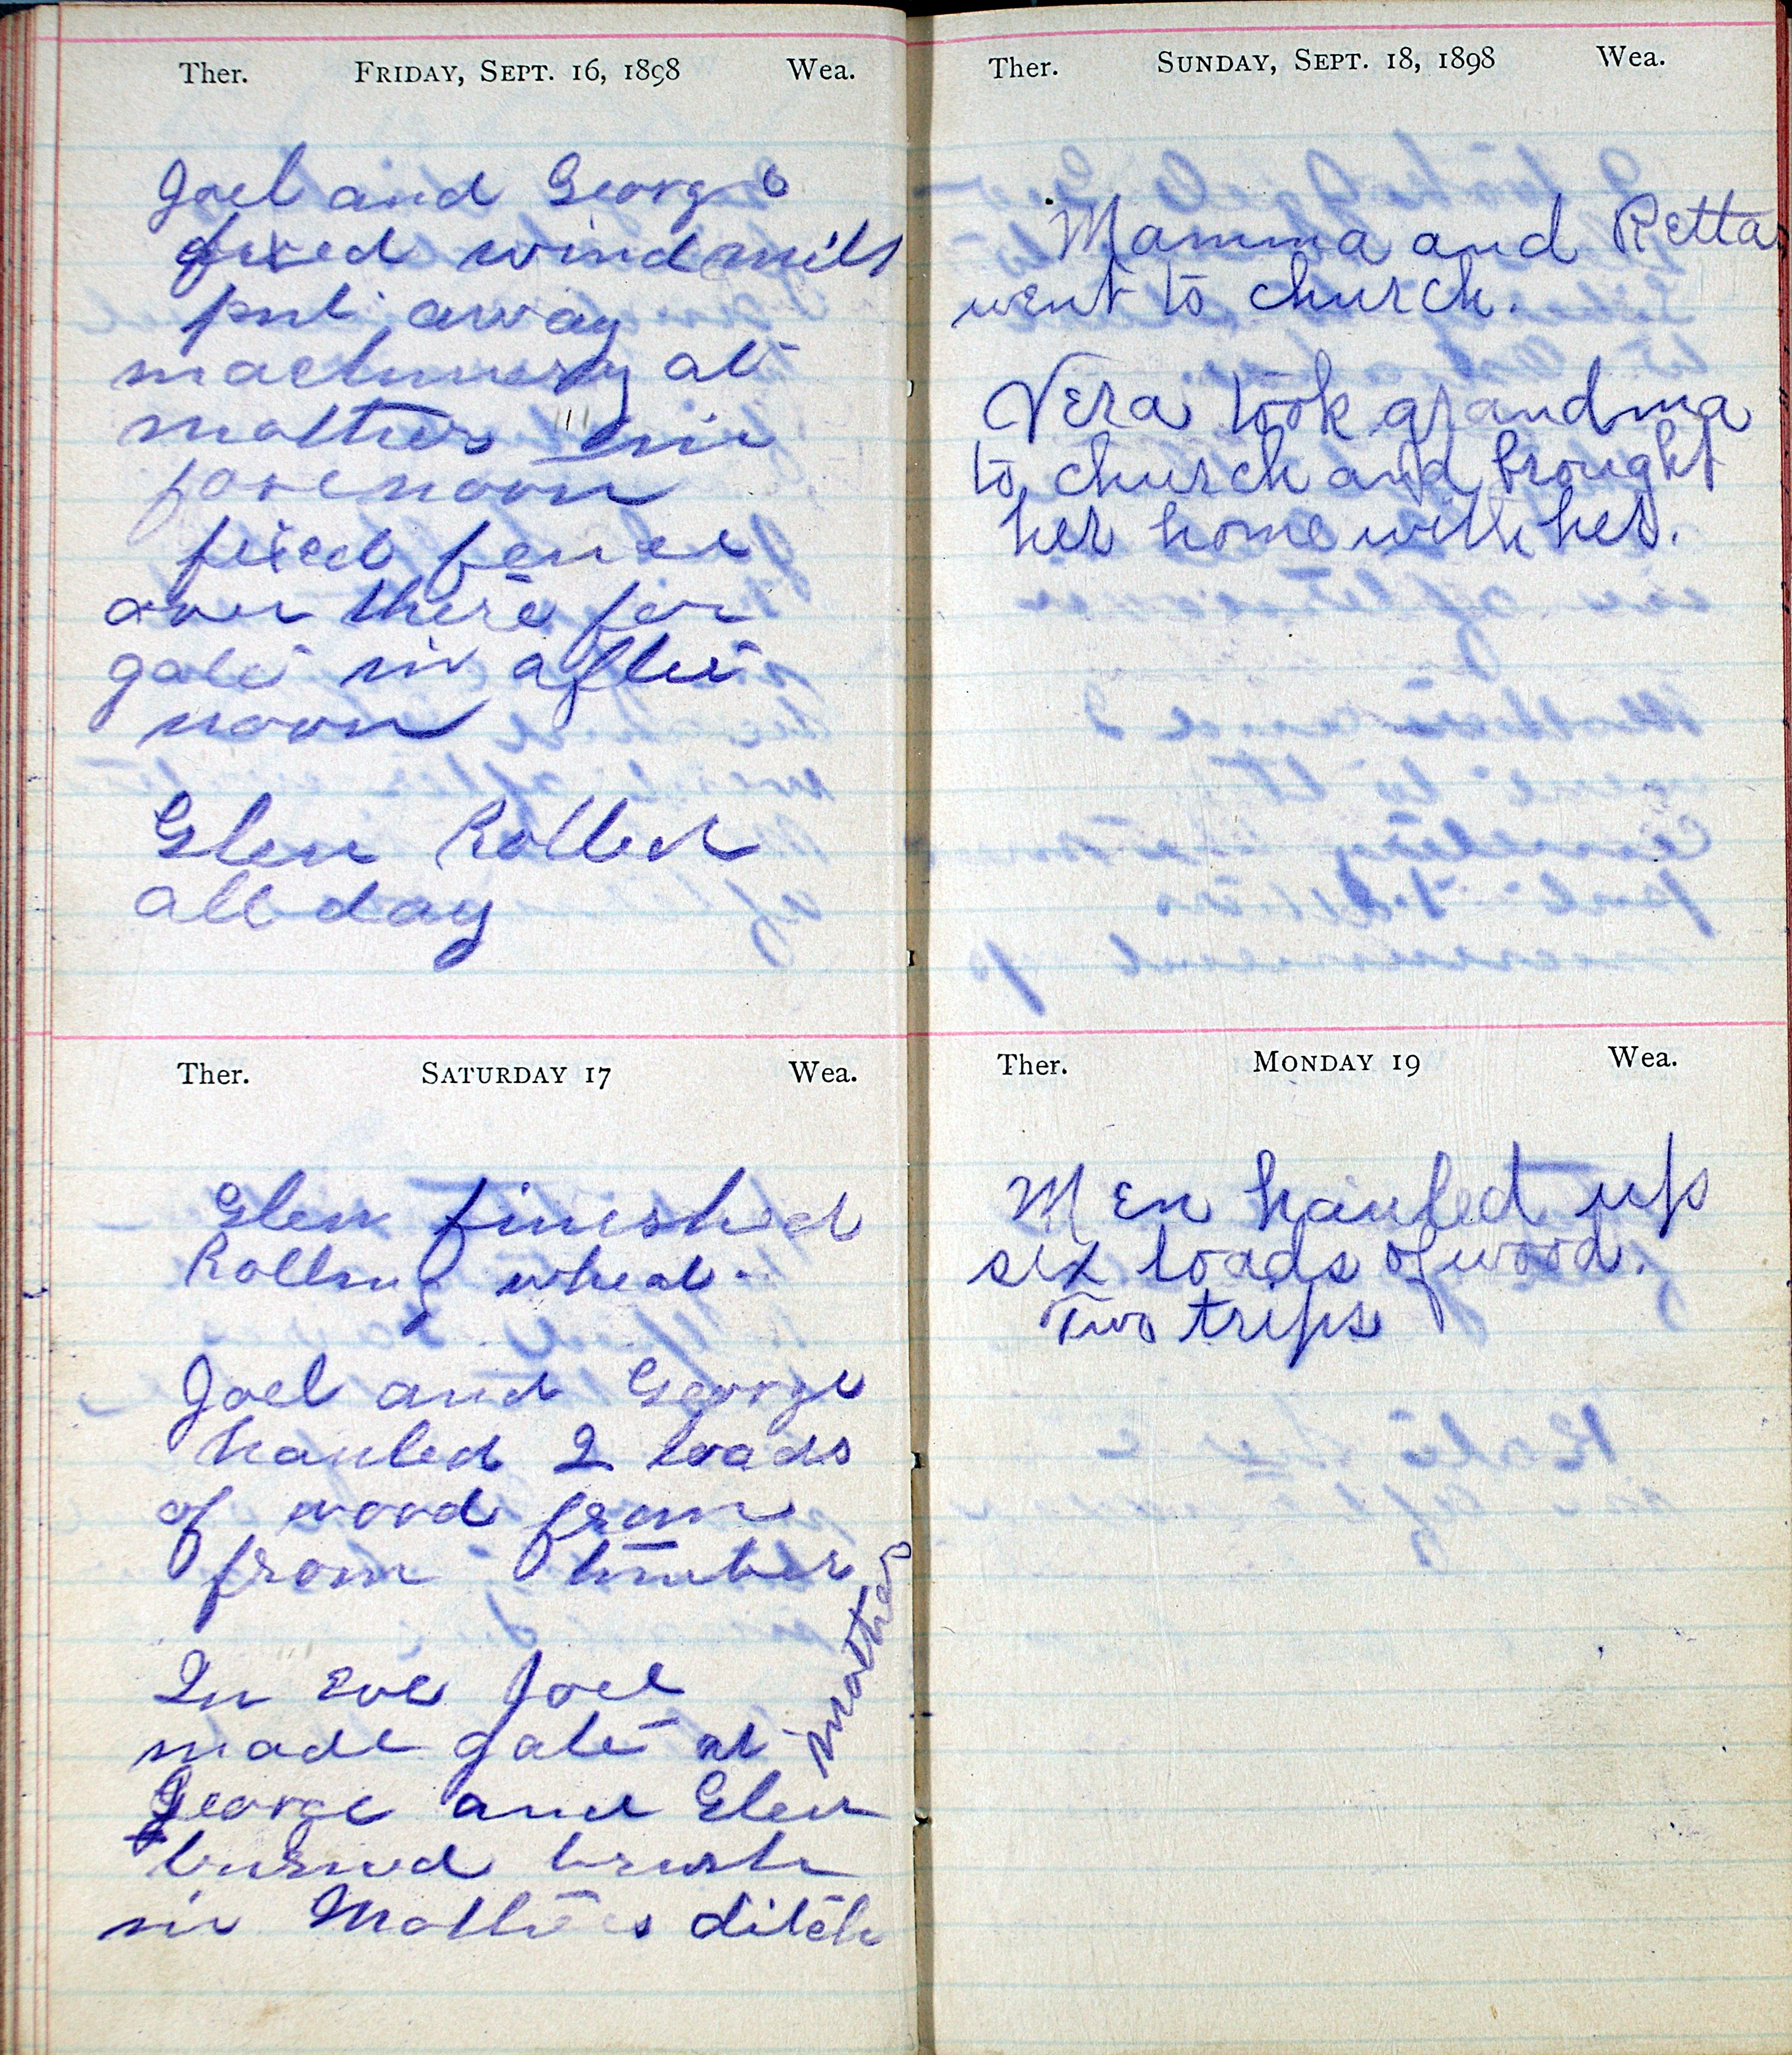 Ther. Friday, Sept. 16, 1898 Wea.
Joel and George
fixed windmill
put away
machinery at
mothers in
forenoon
fixed fence
over there for
gate in after
noon
Glen Rolled
all day
Ther. Saturday 17 Wea.
Glen finished
Rolling wheat.
Joel and George
hauled 2 loads
of wood from
from timber
In eve Joel
made gate at mothers
George and Glen
burned brush
in Mothers ditch
Ther. Sunday, Sept. 18, 1898 Wea.
Mamma and Retta
went to church.
Vera took grandma
to church and brought
her home with her.
Ther. Monday 19 Wea.
Men hauled up
six loads of wood.
Two trips